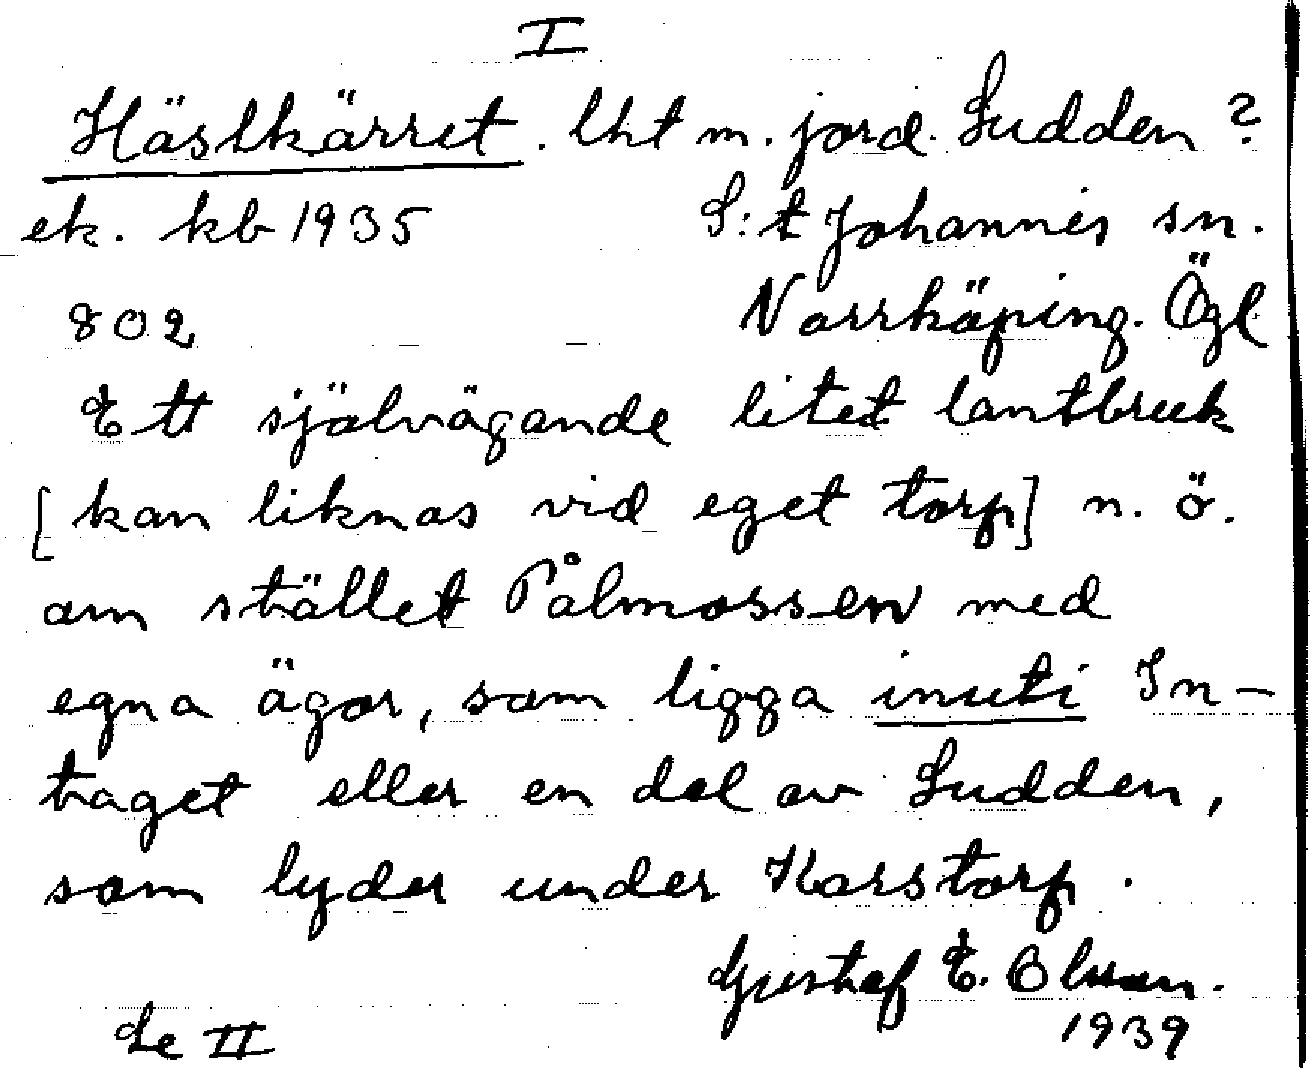 I
Hästkärret. lht m. jord. Sudden?
ek. kb 1935 S:t Johannes sn.
802 Norrköping. Ögl
Ett självägande litet lantbruk
[kan liknas vid eget torp] n. ö.
om stället Pålmossen med
egna ägor, som ligga inuti In-
taget eller en del av Sudden,
som lyder under Korstorp.
Gustaf E. Olsson.
Se II 1939